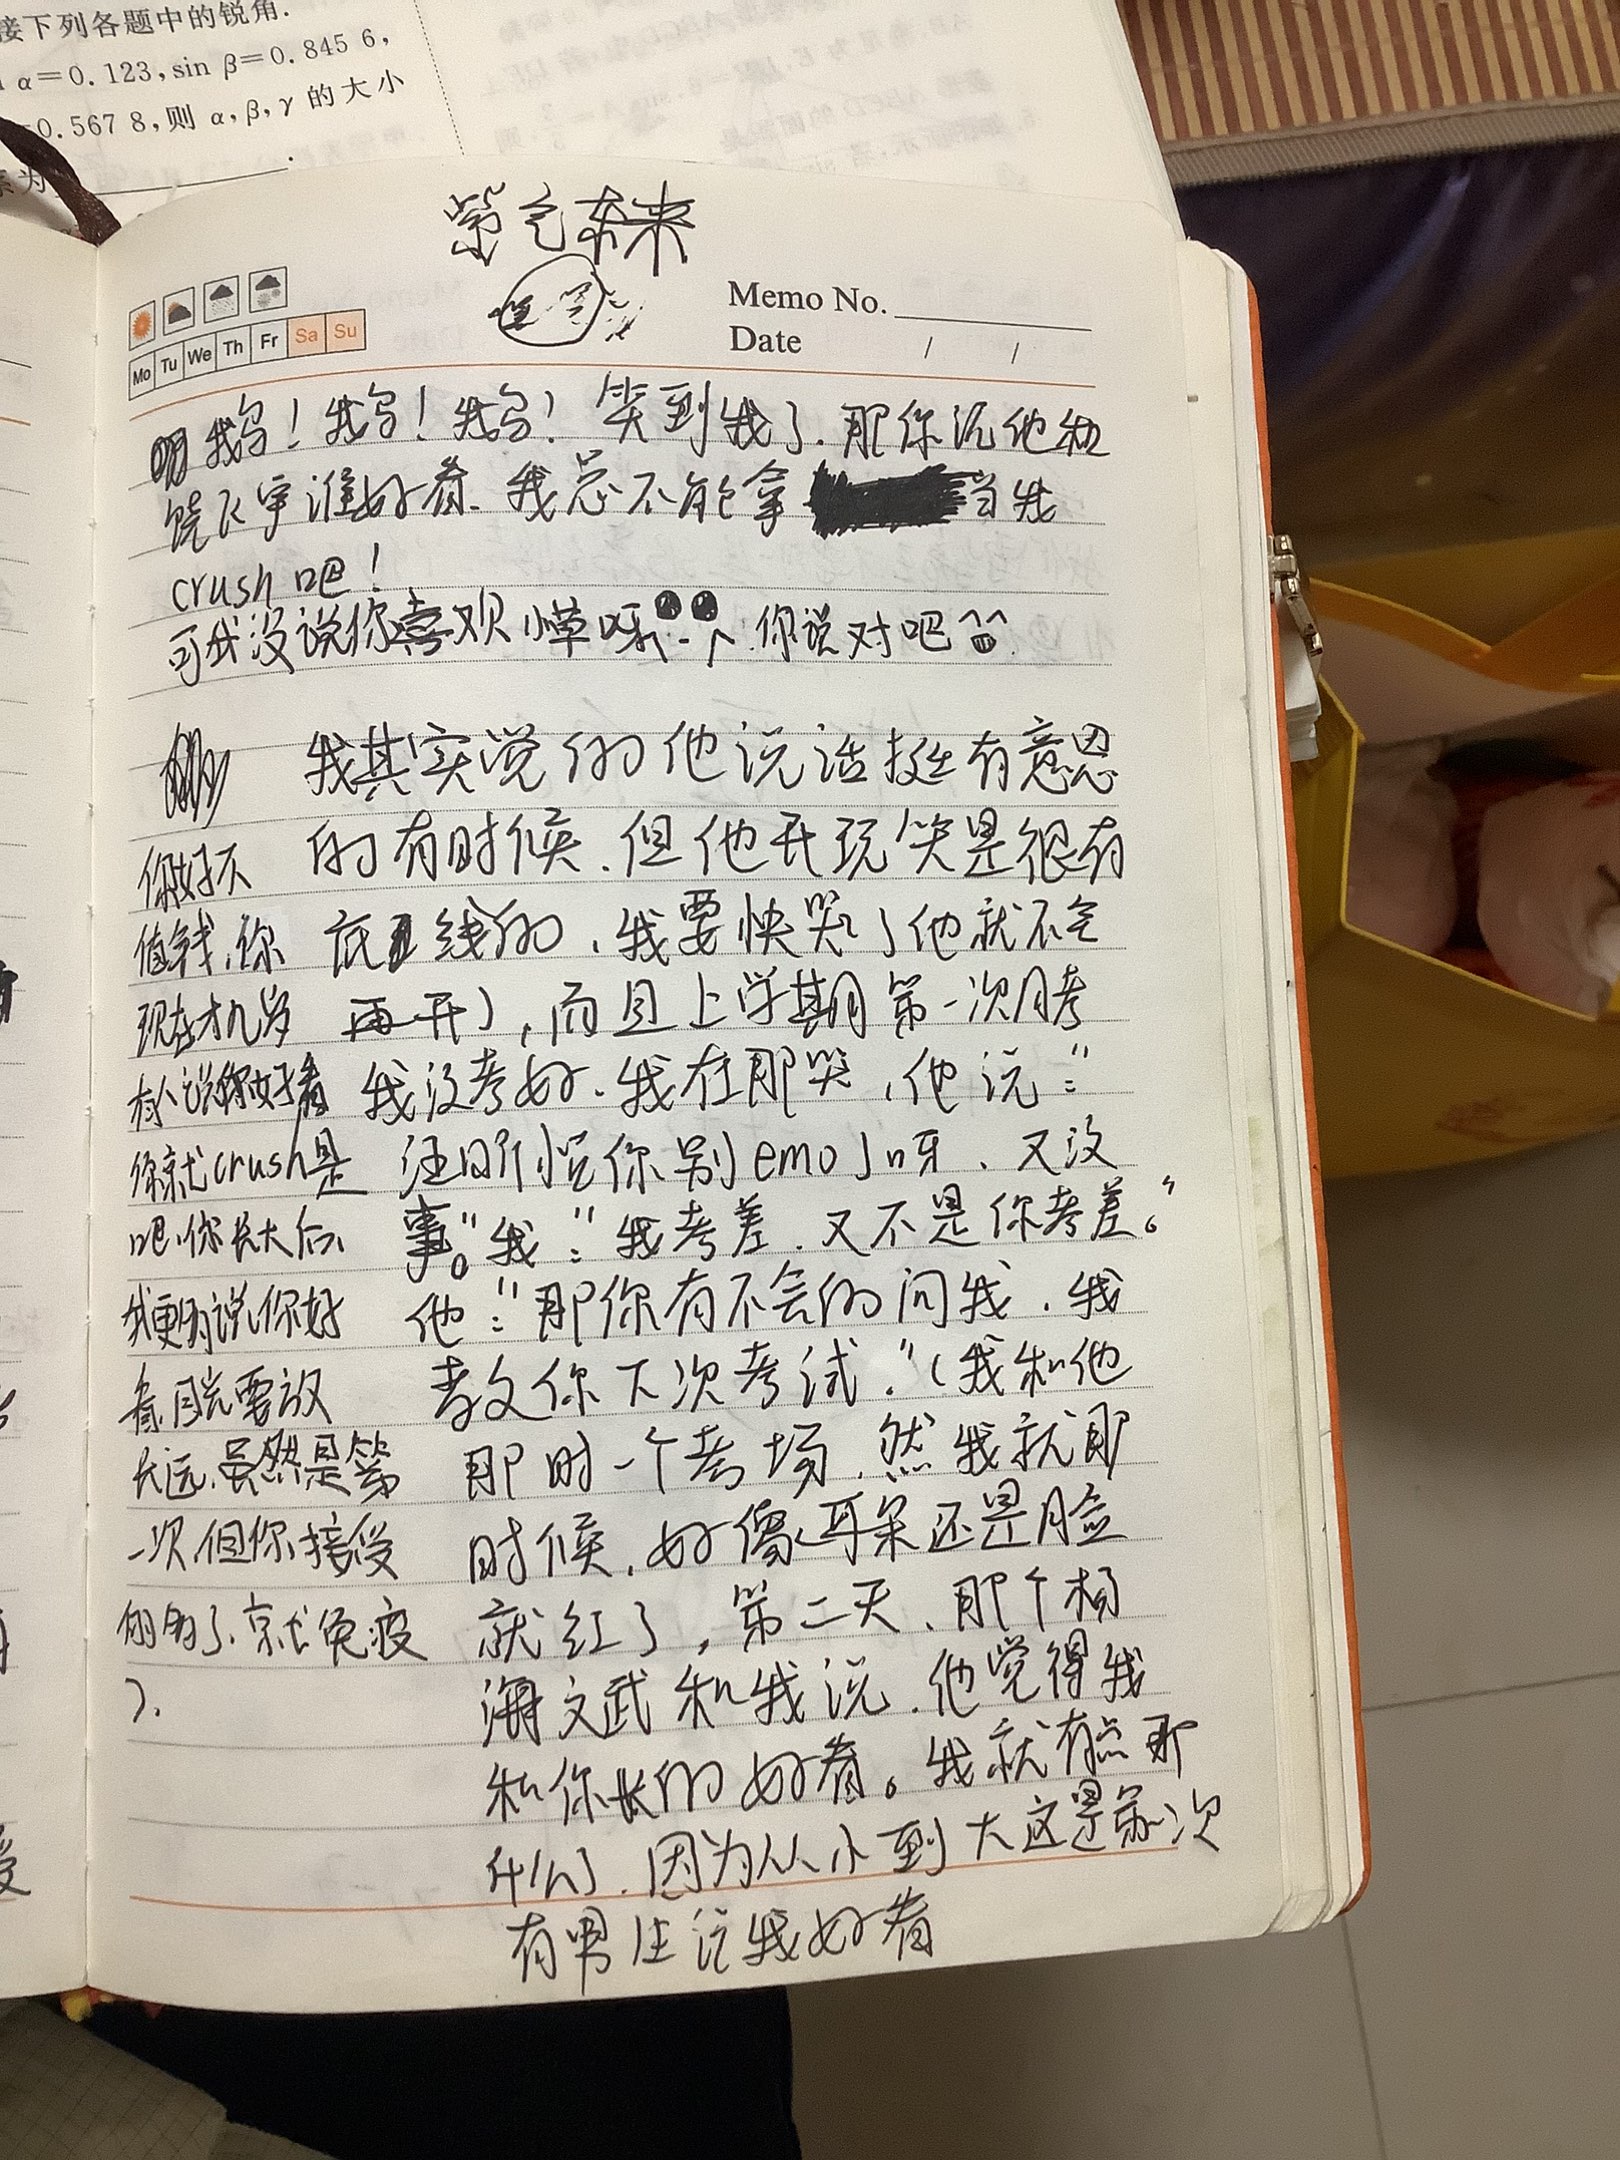 接下列各题中的锐角.
α=0.123,sin β=0.845 6,
=0.567 8,则 α,β,γ 的大小
紫气东来
Memo No.
Date / /
Mo Tu We Th Fr Sa Su
我写！我写！我写！笑到我了.那你说他和
饶飞宇谁好看.我总不能拿 当我
crush吧！
可我没说你喜欢小草呀 你说对吧
我其实觉的他说话挺有意思
的有时候.但他开玩笑是很有
底线的,我要快哭了他就不会
再开),而且上学期第一次月考
我没考好.我在那哭,他说:"
汪昕怡你别emo了呀、又没
事。"我:"我考差.又不是你考差。"
他:"那你有不会的问我.我
教你下次考试."(我和他
那时一个考场.然我就那
时候,好像耳朵还是脸
就红了,第二天、那个杨
海文武和我说.他觉得我
和你长的好看。我就有点那
什么了.因为从小到大这是第一次
有男生说我好看
你好不
值钱,你
现在才几岁
有人说你好看
你就crush是
吧,你长大后,
我更多说你好
看,目光要放
长远,虽然是第
一次,但你接受
的多了,就免疫
了.